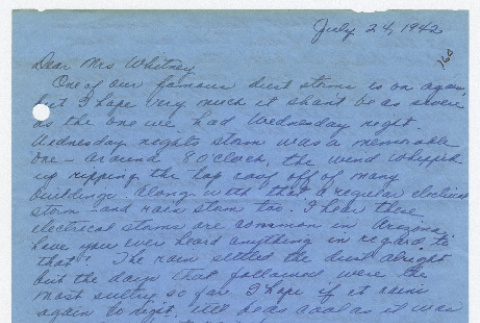 July 24, 1942
160
Dear Mrs Whitney
One of our famous dust storms is on again,
but I hope very much it shant be as severe
as the one we had Wednesday night.
Wednesday nights storm was a memorable
one - around 8 O'clock, the wind whipped
up ripping the top off of many
buildings. Along with that, a regular electrical
storm - and rain storm too. I hear these
electrical storms are common in Arizona;
have you ever heard anything in regard to
that? The rain settled the dust alright
but the days that followed were the
most sultry so far. I hope if it rains
again to night, be as cool as it was